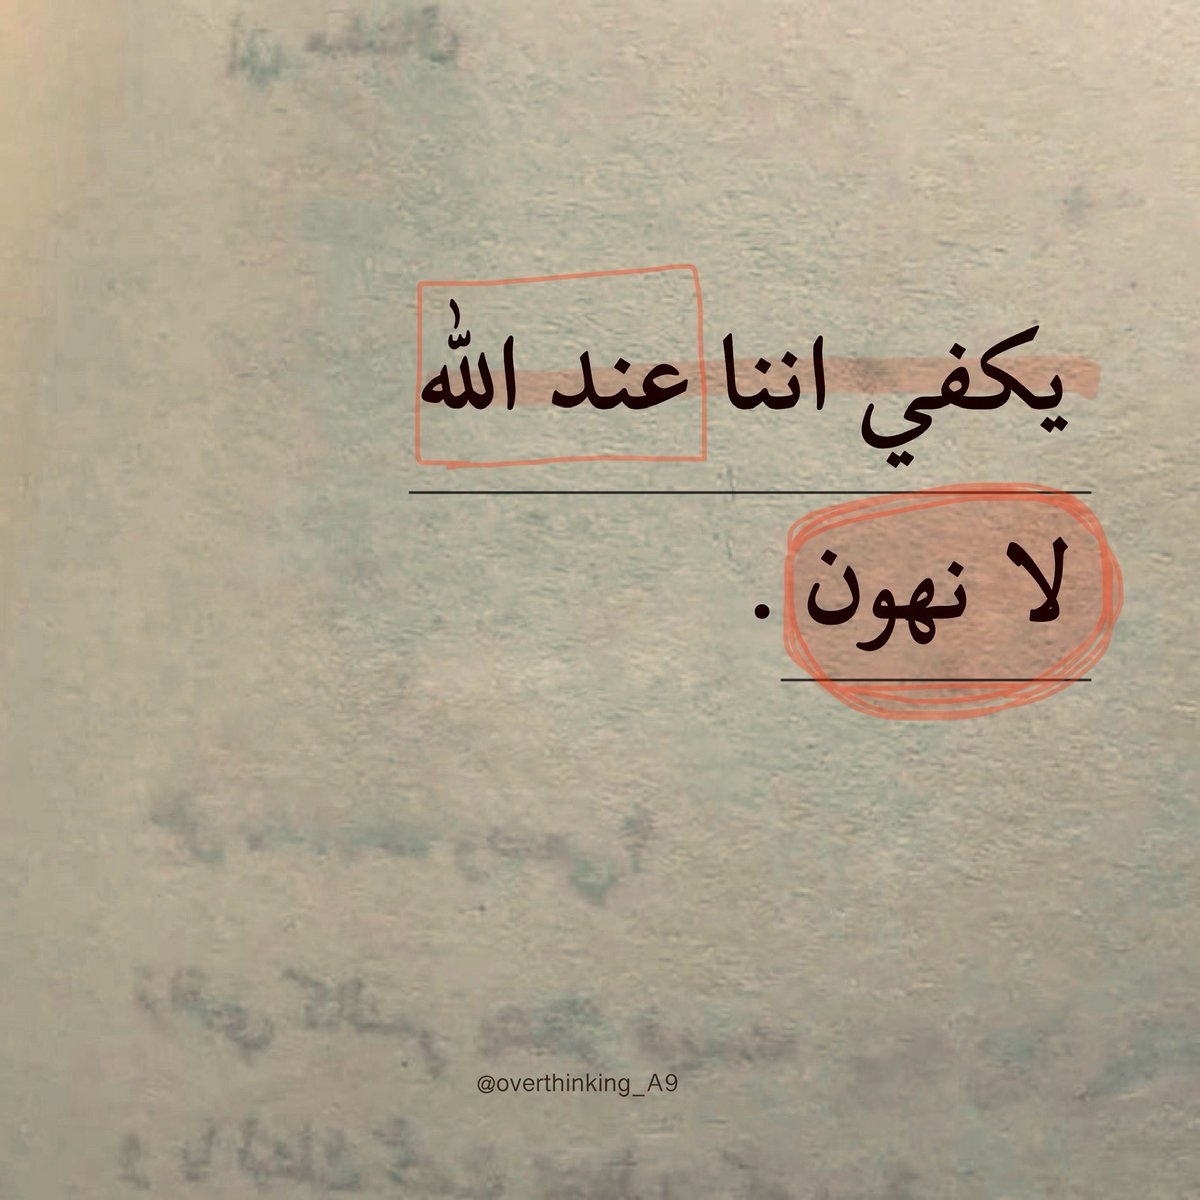 يكفي اننا عند الله
لا نهون .
@overthinking_A9